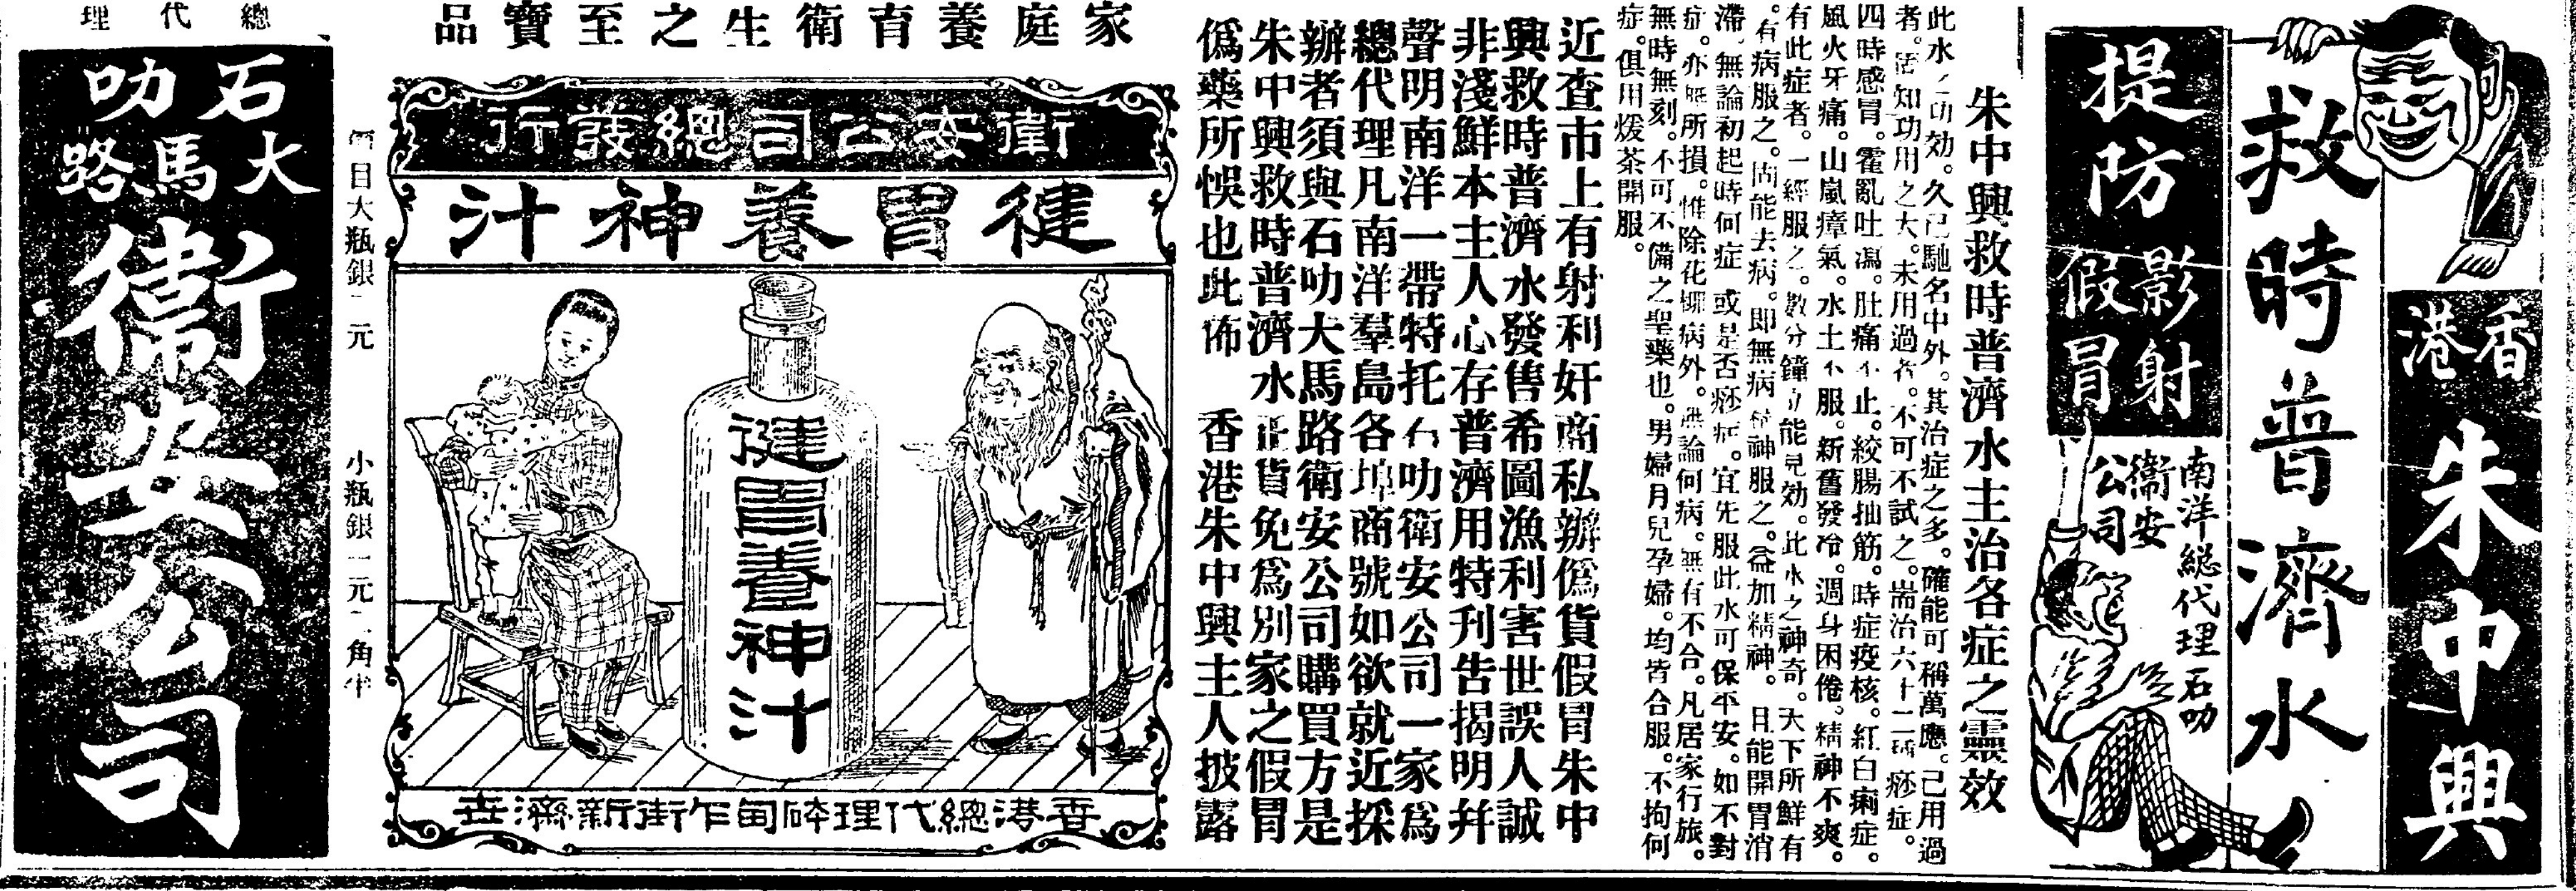 香港
朱中興
救時普濟水
提防
影射
假冒
南洋總代理石叻
衛安
公司
朱中興救時普濟水主治各症之靈效
此水之功効。久已馳名中外。其治症之多。確能可稱萬應。已用過
者。固知功用之大。未用過者。不可不試之。耑治六十二種痧症。
四時感冒。霍亂吐瀉。肚痛不止。絞腸抽筋。時症疫核。紅白痢症。
風火牙痛。山嵐瘴氣。水土不服。新舊發冷。週身困倦。精神不爽。
有此症者。一經服之。數分鐘立能見効。此水之神奇。天下所鮮有
。有病服之。固能去病。即無病精神服之。益加精神。且能開胃消
滯。無論初起時何症 或是否痧症。宜先服此水可保平安。如不對
症。亦無所損。惟除花柳病外。無論何病。無有不合。凡居家行旅。
無時無刻。不可不備之聖藥也。男婦月兒孕婦。均皆合服。不拘何
症。俱用煖茶開服。
近查市上有射利奸商私辦僞貨假冒朱中
興救時普濟水發售希圖漁利害世誤人誠
非淺鮮本主人心存普濟用特刊告揭明幷
聲明南洋一帶特托石叻衛安公司一家爲
總代理凡南洋羣島各埠商號如欲就近採
辦者須與石叻大馬路衛安公司購買方是
朱中興救時普濟水正貨免爲別家之假冒
僞藥所悞也此佈 香港朱中興主人披露
家庭養育衛生之至寶品
衛安公司總發行
健胃養神汁
健胃養神汁
香港總代理砵甸乍街新濟安
價目大瓶銀二元 小瓶銀一元二角半
總代理
石叻
大馬路
衛安公司